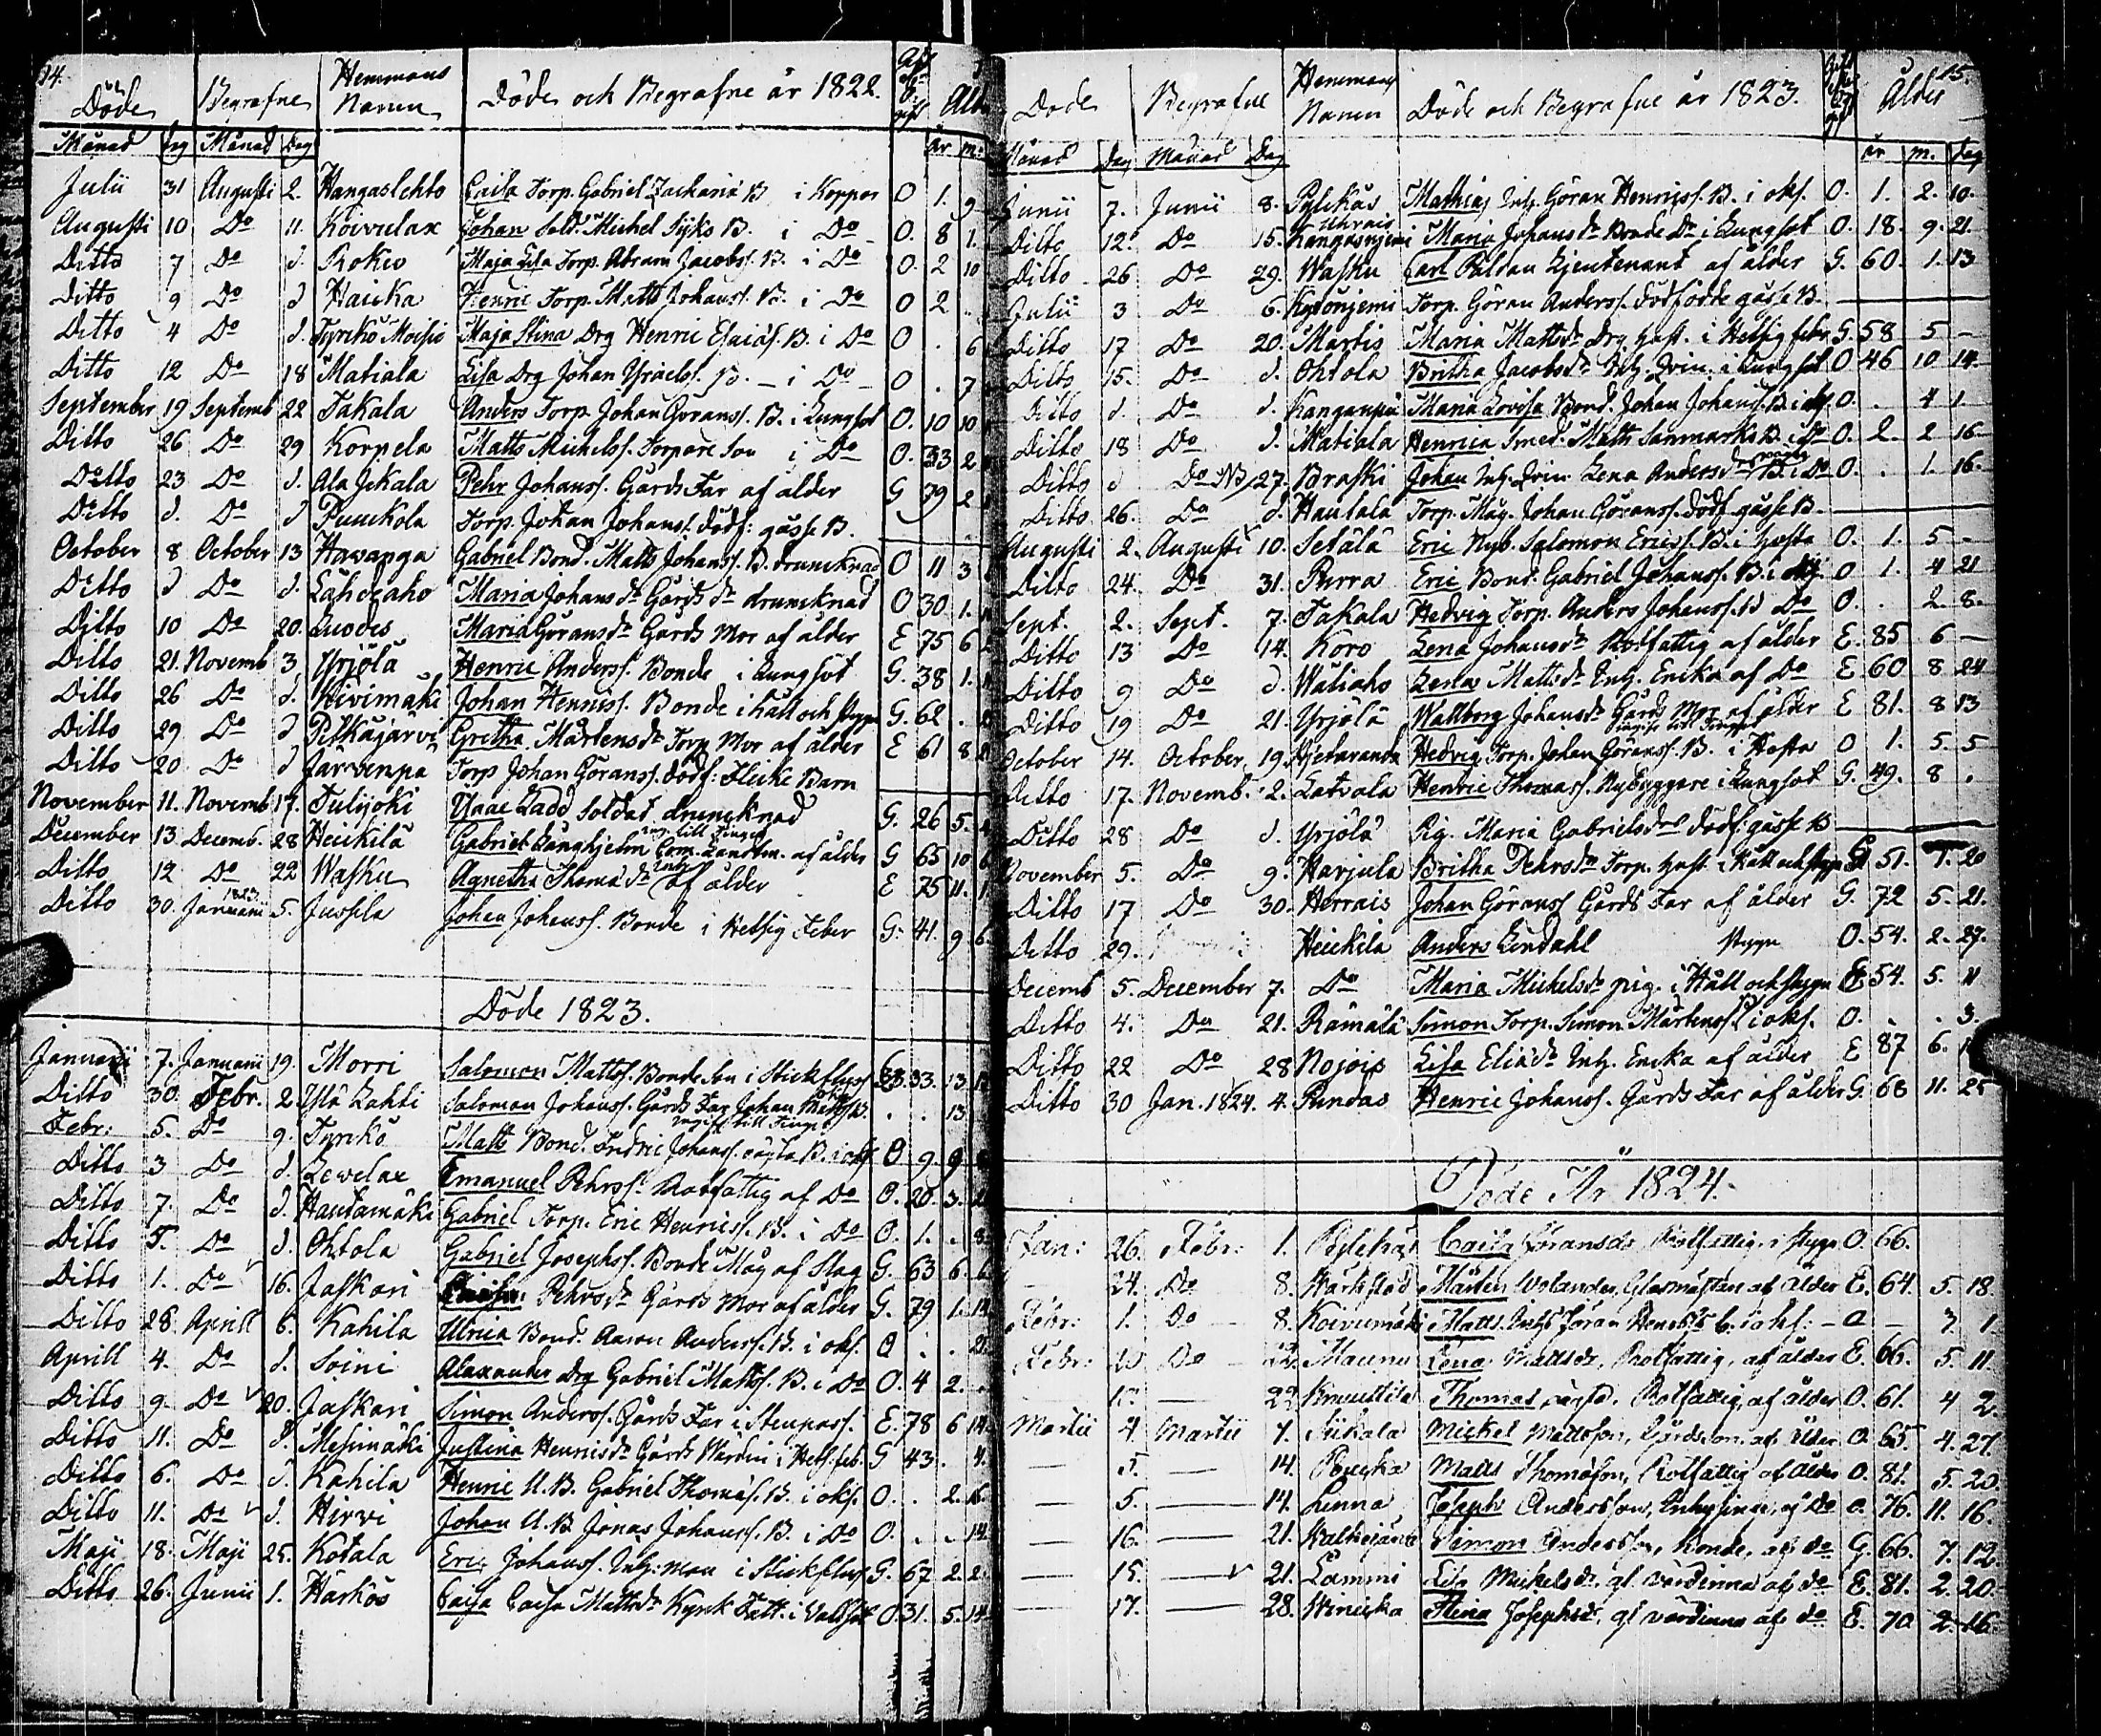 14.
Döde Begrafne Hemmans Namn Döde och Begrafne år 1822. Ålder
Månad dag Månad Dag år m.
Julii 31 Augusti 2. Hangaslehto Caisa Torp. Gabriel Zachariæ B. i Koppor O 1. 9
Augusti 10 Do 11. Koivulax Johan Sold. Michel Syks B. i Do O. 8 1.
Ditto 7 Do d. Kokko Maja Lisa Torp. Abram Jacobss. B. i Do O. 2 10
Ditto 9 Do d Haucka Henric Torp. Matts Johanss. B. i Do O 2
Ditto 4 Do d. Tyrikö Moisio Maja Stina Drg Henric Esaiæs. B. i Do O . 6
Ditto 12 Do 18 Matiala Lisa Drg Johan Ysraelss. B. i Do O . 7
September 19 Septemb 22 Takala Anders Torp. Johan Göranss. B. i Lungsot O. 10 10
Ditto 26 Do 29 Korpela Matts Michelss. Torpare Son i Do O. 33 2
Ditto 23 Do d. Ala Jckala Pehr Johanss. Gårds Far af ålder G 79 2
Ditto d. Do d Puuckola Torp. Johan Johanss. dödf: gosse B.
October 8 October 13 Hawanga Gabriel Bond. Matts Johanss. B. druncknad O 11 3
Ditto d Do d. Lahdeaho Maria Johans dr Gårds dr druncknad O 30 1.
Ditto 10 Do 20. Luodes Maria Görans dr Gårds Mor af ålder E 75 6
Ditto 21. Novemb 3 Yrjölä Henric Anderss. Bonde i Lungsot G. 38 1.
Ditto 26 Do d. Kivimäki Johan Henricss. Bonde i håll och stygn G. 62 .
Ditto 29 Do d Pitkäjärvi Gretha Mårtens dr Torp Mor af ålder E 61 8
Ditto 20 Do d Järvenpä Torp Johan Göranss. dödf: Flicke Barn
November 11. Novemb 17. Tulijoki Ysaac Ladd Soldat druncknad G. 26 5.
December 13 Decemb. 28 Heickilä Gabriel af ålder G 65 10 6
Ditto 12 Do 22 Wasku Agnetha Thomæ dr Inhs af ålder E 75 11. 1
Ditto 30. Januarii 1823 5. Jussila Johan Johanss. Bonde i Hetsig Feber G. 41. 9 6
Döde 1823.
Januarii 7. Januarii 19. Morri Salomon Mattss. Bonde Son i Stickfluss 33. 13.
Ditto 30. Febr. 2. Ylä Lahti Salomon Johanss. Gårds Far Johan . . 13
Febr: 5. Do 9. Tyrikö Matts Bond. Fredric Johanss. B. i oks. O 9. 9
Ditto 3 Do d. Lewelax Emanuel Pehrss. Rotfattig af Do O. 20. 3.
Ditto 7. Do d. Hautamäki Gabriel Torp. Eric Henricss. B. i Do O. 1. . 8
Ditto 5. Do d. Ohtola Gabriel Josephss. Bonde Måg af Slag G. 63 6. 6
Ditto 1. Do 16. Jaskari Pehrs dr Gårds Mor af ålder G. 79 1.
Ditto 28 Aprill 6. Kahila Ulrica Bond. Aaron Anderss. B. i oks. O . .
Aprill 4. Do d. Soini Alexander Drg Gabriel Mattss. B. i Do O. 4 2.
Ditto 9. Do 20. Jaskari Simon Anderss. Gårds Far i Stenpass. E. 78 6 14
Ditto 11. Do d. Mesimäki Justina Henrics dr Gårds Wärdin i Hets. feb. G 43 . 4.
Ditto 6. Do d. Kahila Henric U. B. Gabriel Thomæs. B. i oks. O. . 2. 16
Ditto 11. Do d. Hirvi Johan U. B Jonas Johanss. B. i Do O. . . 14.
Maji 18. Maji 25. Kotala Eric Johanss. Inh: man i Stickfluss G. 67 2. 2.
Ditto 26. Junii 1. Härkös Caisa Caisa Matts dr Kyrck Fatt. i Vattsot O. 31. 5. 14.
15.
Döde Begrafne Hemmans Namn Döde och Begrafne år 1823. Ålder
Månad Dag Månad Dag år m. dag
Junii 7. Junii 8. Pylckäs Mathias Inh. Göran Henricss. B. i oks. O. 1. 2. 10.
Ditto 12. Do 15. Kangasnjemi Maria Johans dr Bonde Dr i Lungsot O. 18. 9. 21
Ditto 26 Do 29. Wasku Carl Palvan Lieutenant af ålder G. 60. 1. 13
Julii 3 Do 6. Kytönjemi Torp. Göran Anderss. dödfödde gosse B
Ditto 17 Do 20. Martis Maria Matts dr Drg hust. i Hetsig feber G. 58 5
Ditto 15. Do d. Ohtola Britha Jacobs dr Inh. Qvin. i Lungsot O 46 10 14.
Ditto d. Do d. Kanganpä Maria Lovisa Bond. Johan Johanss. B. i oks. O. . 4 1
Ditto 18 Do d. Matiala Henrica Smed. Matts Sanmarks B. i Do O. 2. 2 16
Ditto d Do NB 27. Braski Johan Inh. Qvin Lena Anders dr B. i Do O. . 1. 16.
Ditto 26. Do d. Hautala Torp. Måg. Johan Göranss. dödf gosse B
Augusti 2. Augusti 10. Setälä Eric Nyb. Salomon Ericss. B. i hosta O. 1. 5
Ditto 24. Do 31. Purra Eric Bond. Gabriel Johanss. B. i oks. O 1. 4 21
Sept. 2. Sept. 7. Takala Hedvig Torp. Anders Johanss. B Do O. . 2. 8.
Ditto 13 Do 14. Koro Lena Johans dr Rotfattig af ålder E. 85 6
Ditto 9 Do d. Wätiaho Lena Matts dr Inh. Encka af Do E 60 8 24
Ditto 19 Do 21. Yrjölä Wallborg Johans dr Gårds Mor af ålder E 81. 8 13
October 14. October. 19. Hjetaranda Hedvig Torp. Johan Göranss. B. i Hosta O 1. 5 5
Ditto 17. Novemb. 2. Latvala Henric Thomass. Nybyggare i Lungsot G. 49. 8 .
Ditto 28 Do d. Yrjölä Pig. Maria Gabriels dr dödf. gosse B
November 5. Do 9. Harjula Britha Pehrs dr Torp. hust. i Håll och stygn 51. 7. 20
Ditto 17 Do 30. Herrais Johan Göranss Gårds Far af ålder G. 72 5. 21.
Ditto 29. Heickilä Anders Lindahl Stygn O. 54. 2. 27.
Decemb 5. December 7. Do Maria Michels dr pig. i Håll och stygn 54. 5. 11
Ditto 4. Do 21. Rämälä Simon Torp. Simon Mårtenss. i oks. O. . . 3.
Ditto 22 Do 28 Nojois Lisa Eliæ dr Inh. Encka af ålder E 87 6.
Ditto 30 Jan. 1824. 4. Pundas Henric Johanss. Gårds Far af ålder G. 68 11. 25
Döde År 1824.
Jan: 26. Febr: 1. Pylckäs Caisa Göransdr Rotfattig i stygn O. 66.
24. Do 8. Härkstad Mårten Wolander, Glasmästare af ålder E. 64. 5. 18.
Febr: 1. Do 8. Koivumäki Matts. Inhs Göran b. i oks: O 7. 1.
Febr: Do 22. Maunu Lena Mattsdr, Rotfattig, af ålder E. 66. 5 11.
22 Knuuttila Thomas Rotfattig, af ålder O. 61. 4 2.
Martii 4. Martii 7. Siikala Mickel Mattsson, af ålder O. 65. 4. 27.
5. 14. Poucka Matts Thomæson, Rotfattig af ålder O. 81. 5. 20.
5. 14. Linna Joseph Andersson, Inhysing, af Do O. 76. 11. 16.
16. 21. Kalliojärvi Simon Andersson, Bonde, af do G. 66. 7. 12.
15. 21. Lammi Lisa Mickelsdr, gl. värdinna af do E. 81. 2. 20.
17. 28. Wenicka Stina Josephsdr, gl värdinna af do E. 70 2. 16.